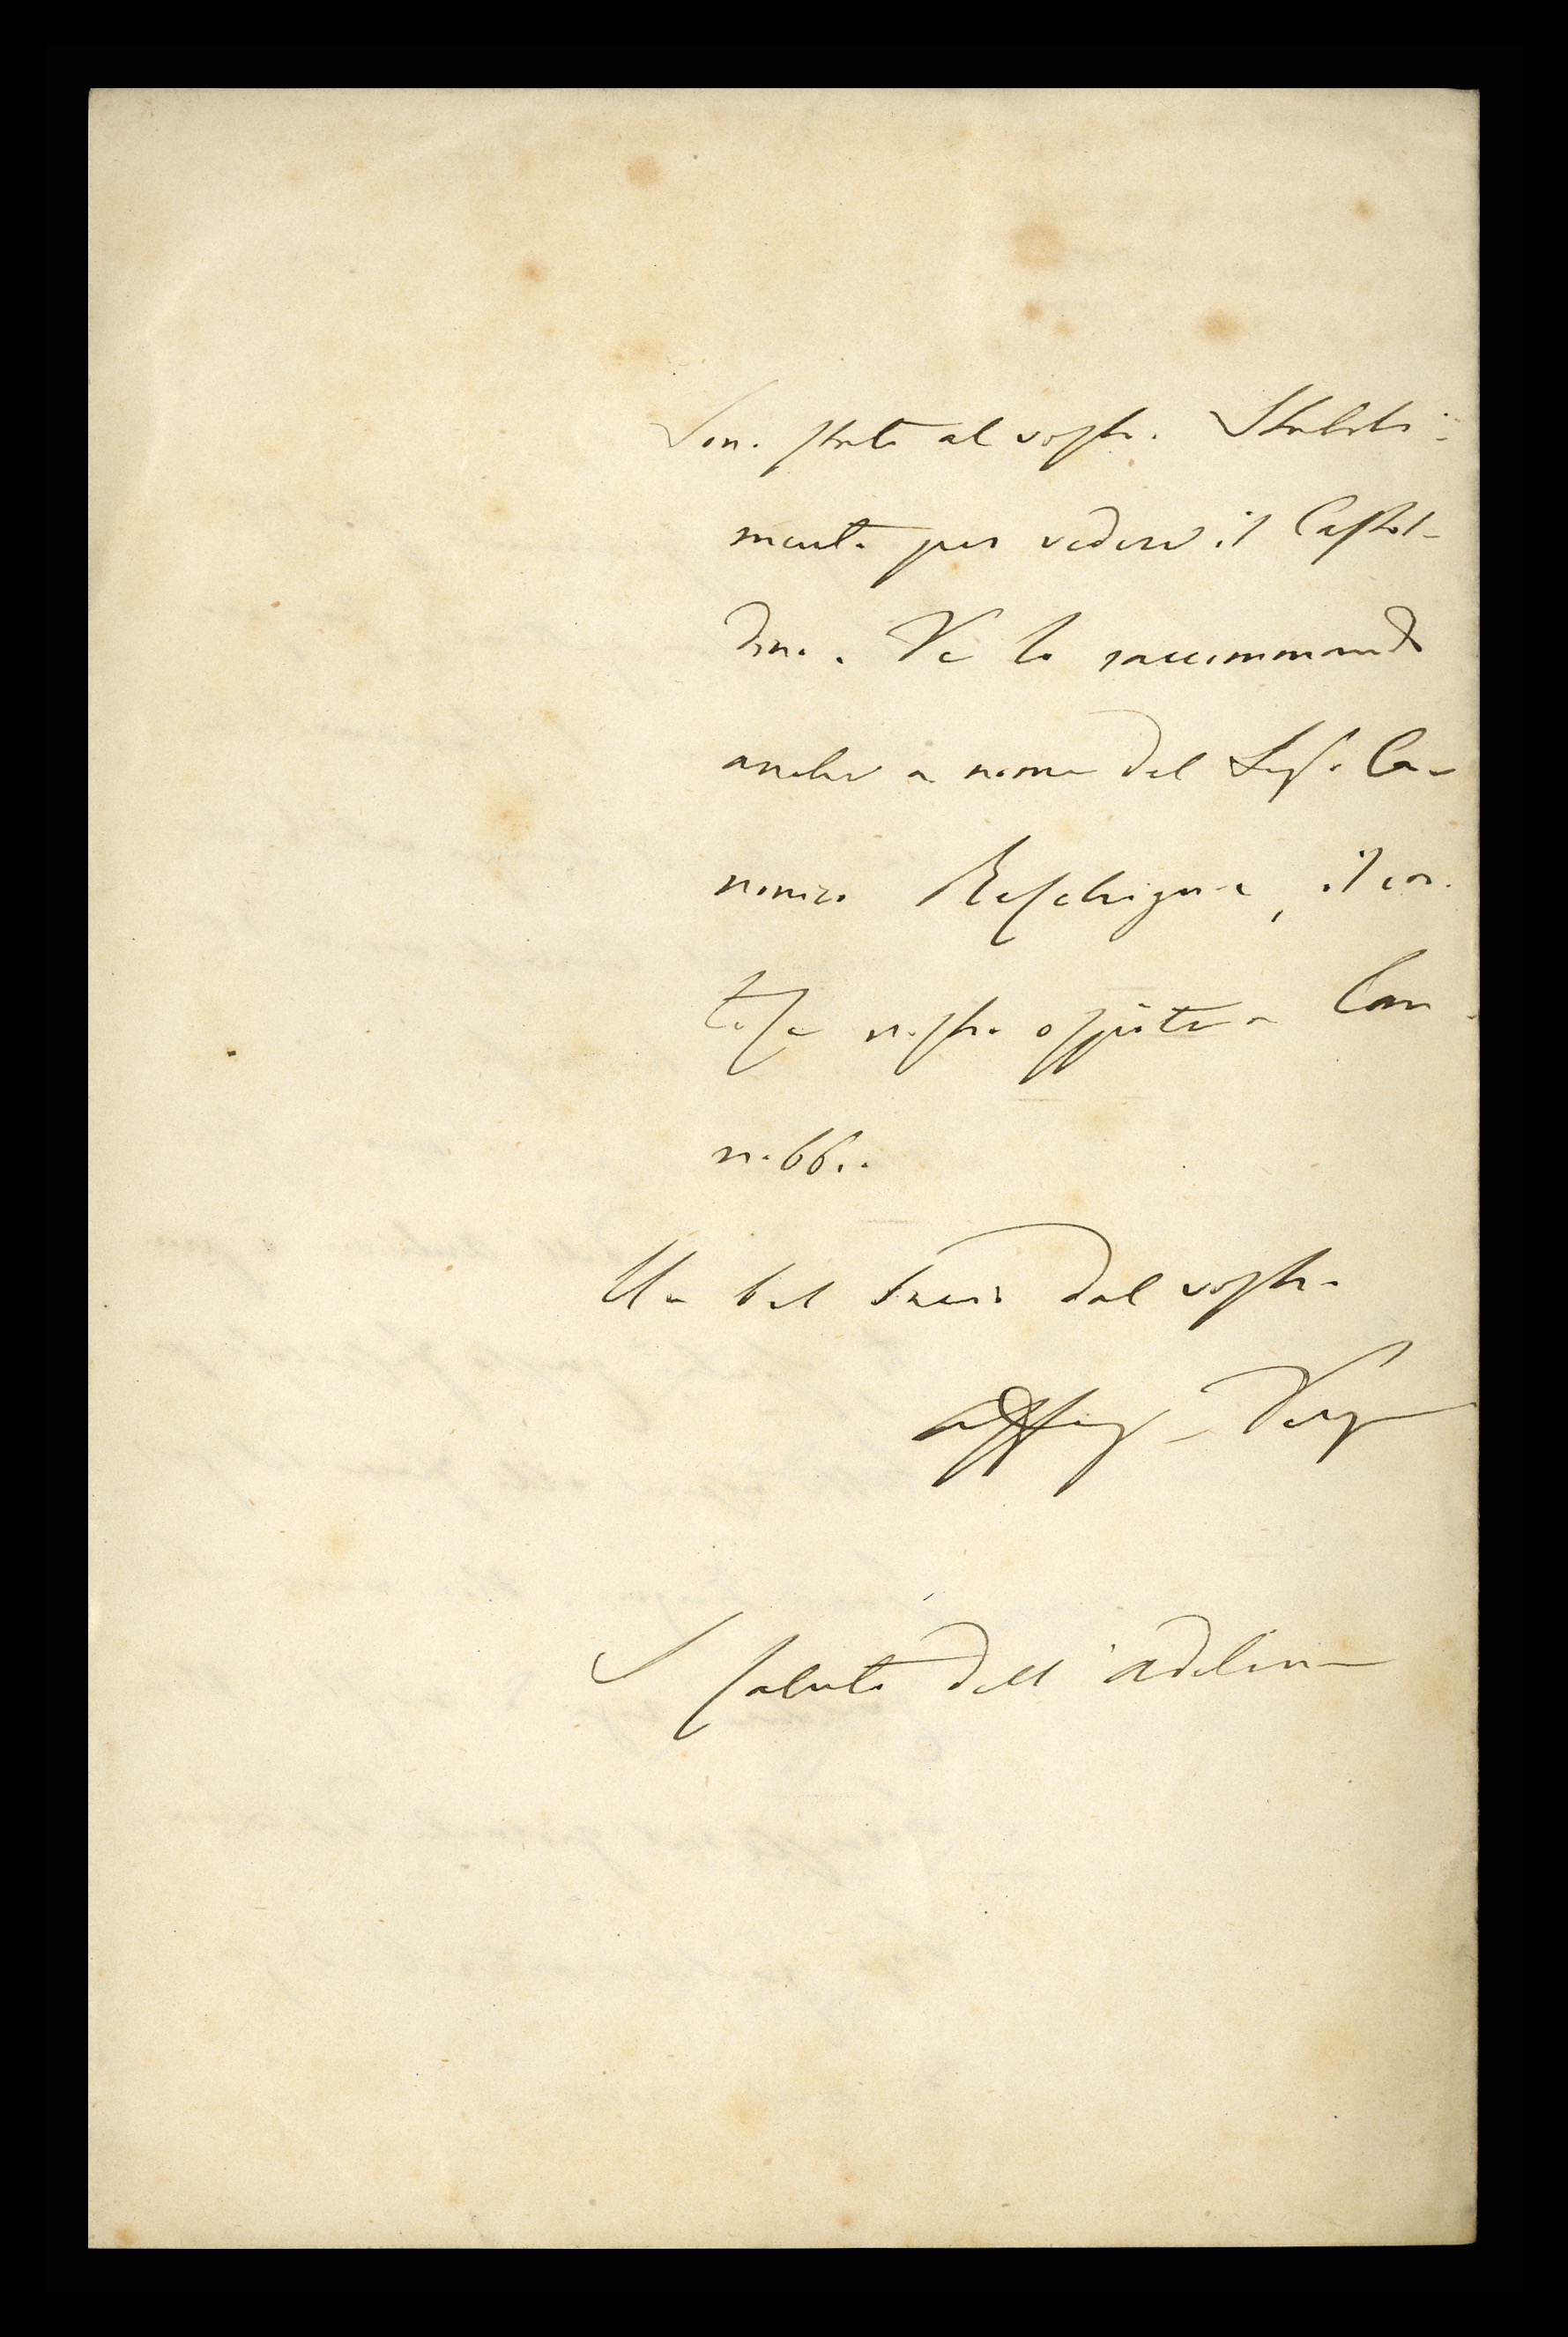 Sono stato al vostro Stabili=
mento per vedere il Castol-
dino. Ve lo raccommando
anche a nome del Sigr. Ca-
nonico Reschigna, il cor-
tese nostro ospite a Can-
nobbio.
Un bel bacio dal vostro
affez.
I saluti dell'Adelina